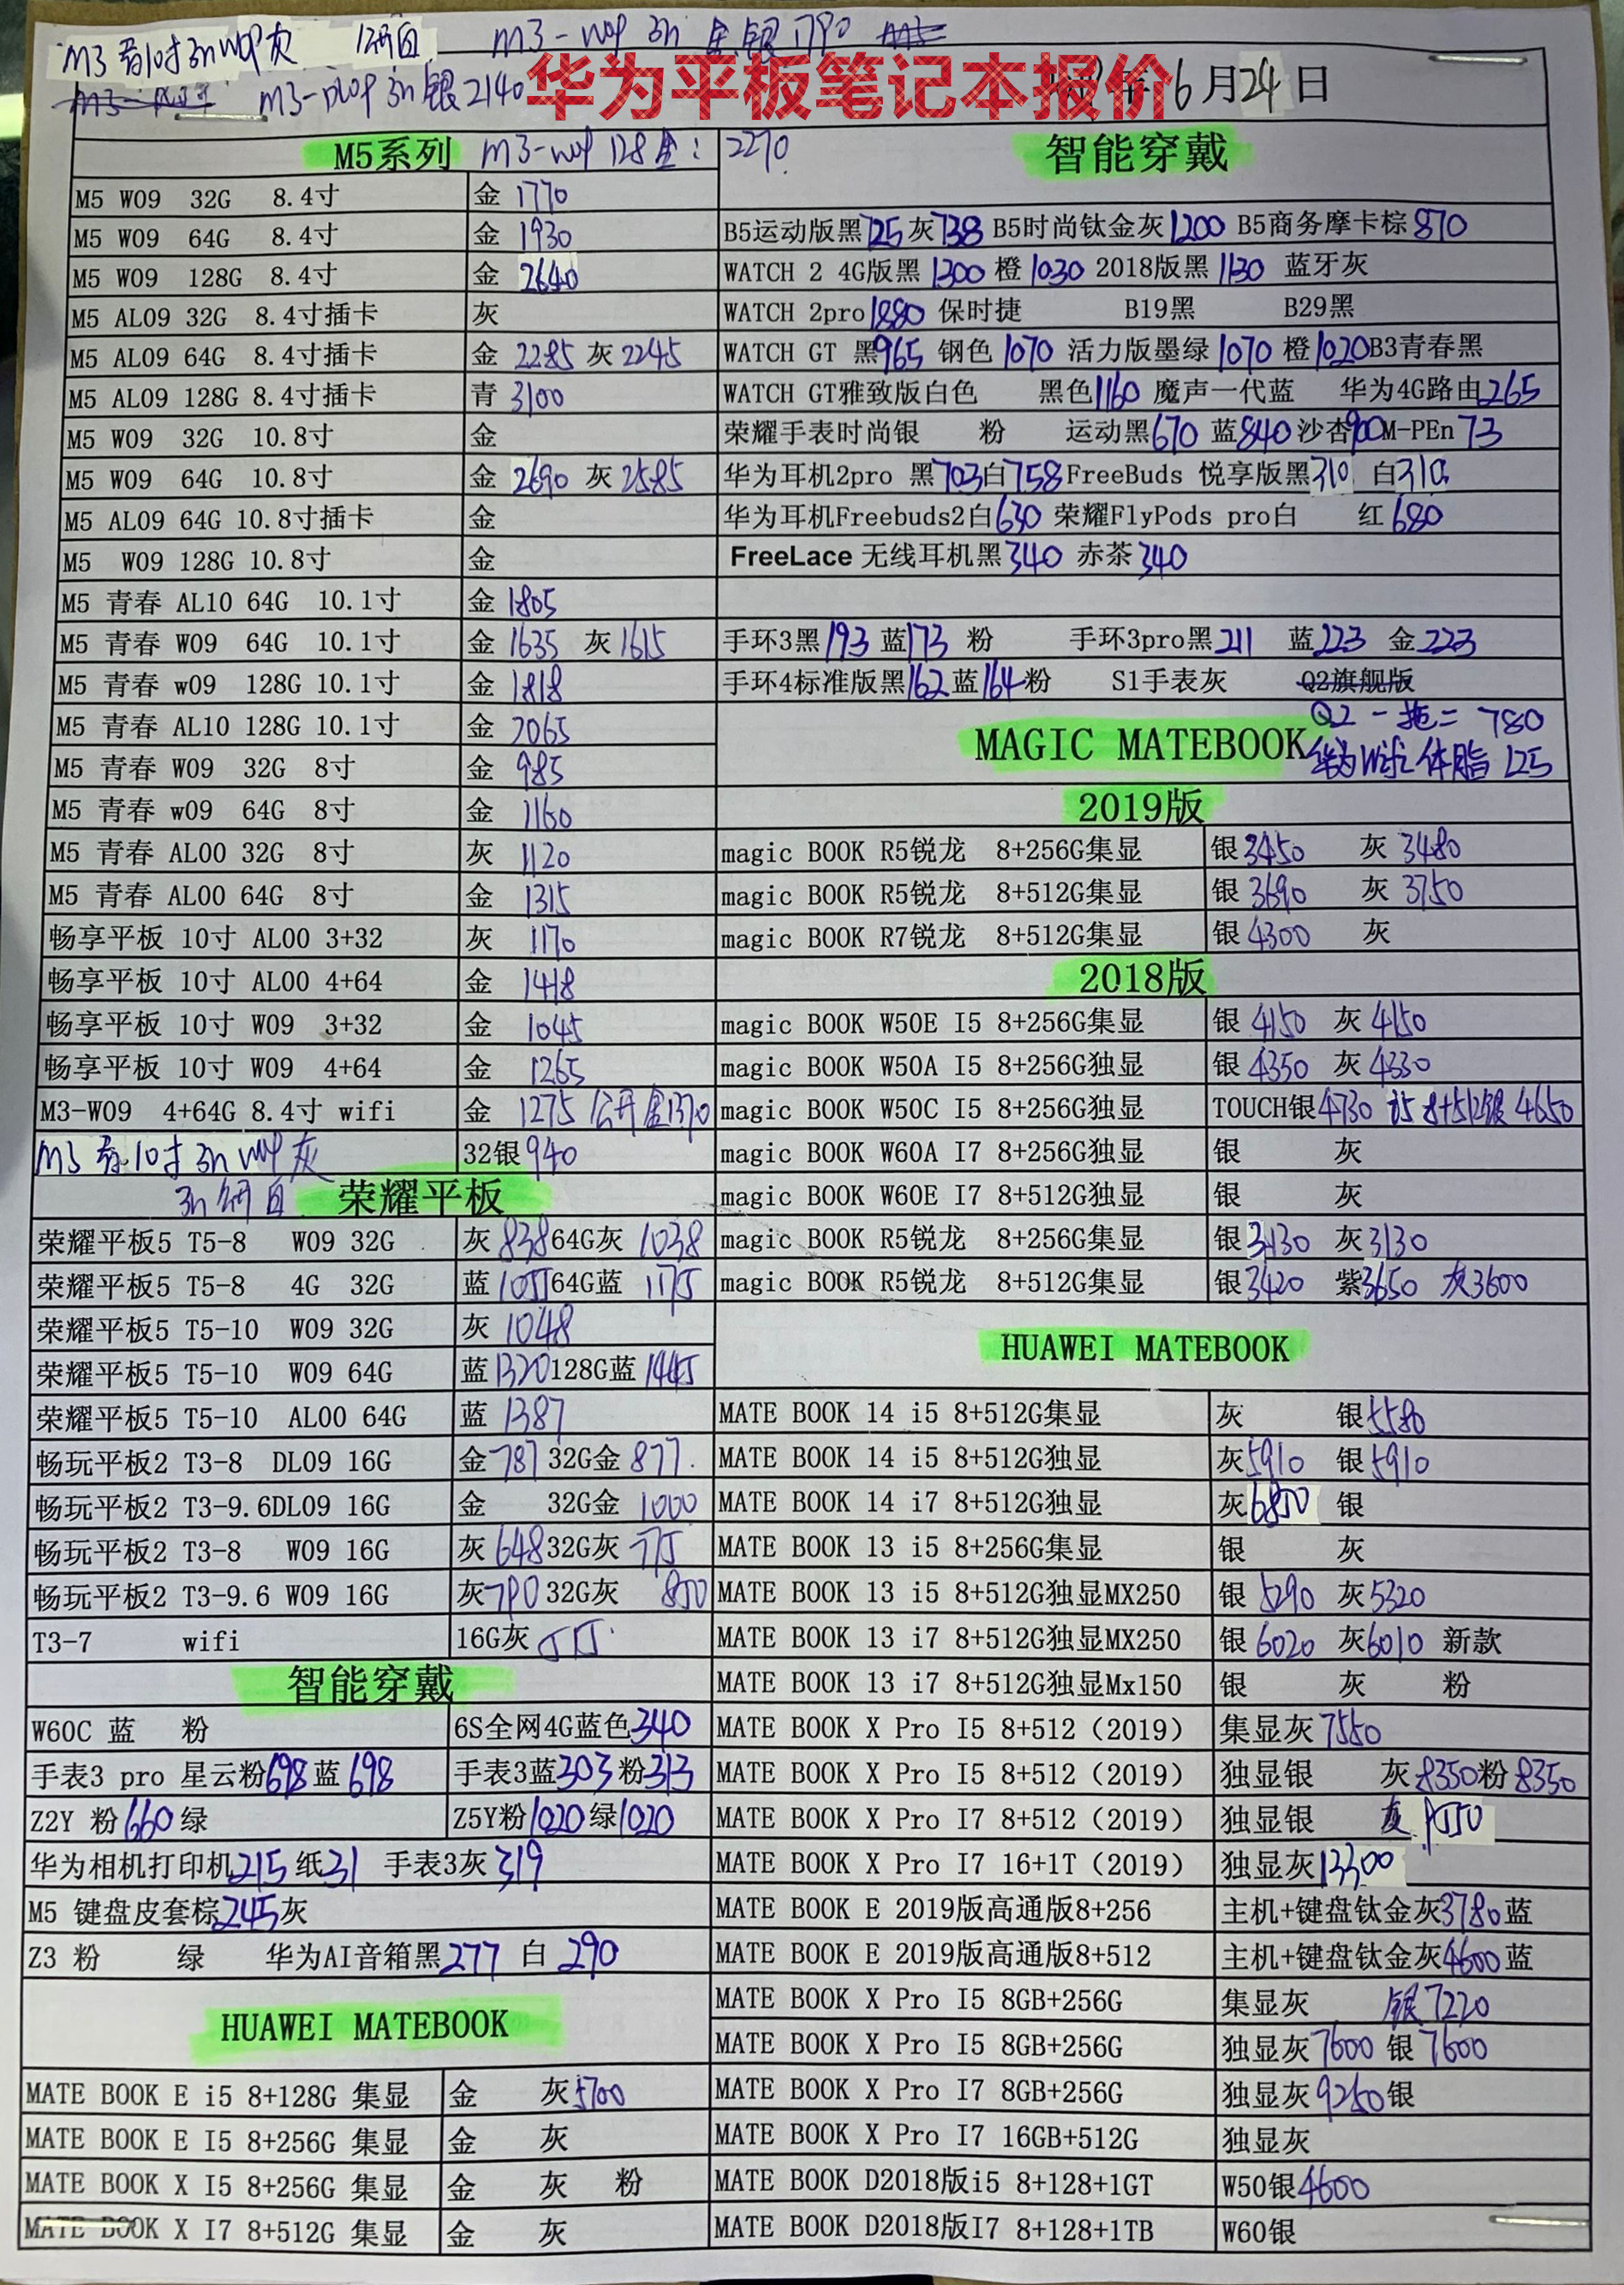 M3青10寸3n W09灰
M3-W09 3n 金 银1790
M3-DL09 3n银2140
华为平板笔记本报价
年6月24日
M5系列 M3-W09 128金: 2270
M5 W09 32G 8.4寸 金 1770
M5 W09 64G 8.4寸 金 1930
M5 W09 128G 8.4寸 金 2640
M5 AL09 32G 8.4寸插卡 灰
M5 AL09 64G 8.4寸插卡 金 2285 灰 2245
M5 AL09 128G 8.4寸插卡 青 3100
M5 W09 32G 10.8寸 金
M5 W09 64G 10.8寸 金 2690 灰 2585
M5 AL09 64G 10.8寸插卡 金
M5 W09 128G 10.8寸 金
M5 青春 AL10 64G 10.1寸 金 1805
M5 青春 W09 64G 10.1寸 金 1635 灰 1615
M5 青春 w09 128G 10.1寸 金 1818
M5 青春 AL10 128G 10.1寸 金 2065
M5 青春 W09 32G 8寸 金 985
M5 青春 w09 64G 8寸 金 1160
M5 青春 AL00 32G 8寸 灰 1120
M5 青春 AL00 64G 8寸 金 1315
畅享平板 10寸 AL00 3+32 灰 1170
畅享平板 10寸 AL00 4+64 金 1418
畅享平板 10寸 W09 3+32 金 1045
畅享平板 10寸 W09 4+64 金 1265
M3-W09 4+64G 8.4寸 wifi 金 1275 公开金1370
M3 青10寸 3n W09 灰 32银940
荣耀平板
荣耀平板5 T5-8 W09 32G 灰 838 64G灰 1038
荣耀平板5 T5-8 4G 32G 蓝 1055 64G蓝 1175
荣耀平板5 T5-10 W09 32G 灰 1048
荣耀平板5 T5-10 W09 64G 蓝1320 128G蓝 1445
荣耀平板5 T5-10 AL00 64G 蓝 1387
畅玩平板2 T3-8 DL09 16G 金787 32G金 877
畅玩平板2 T3-9.6DL09 16G 金 32G金 1000
畅玩平板2 T3-8 W09 16G 灰 648 32G灰 775
畅玩平板2 T3-9.6 W09 16G 灰790 32G灰 850
T3-7 wifi 16G灰 515
智能穿戴
W60C 蓝 粉 6S全网4G蓝色340
手表3 pro 星云粉698 蓝 698 手表3蓝303 粉313
Z2Y 粉660 绿 Z5Y粉1020 绿1020
华为相机打印机215 纸31 手表3灰319
M5 键盘皮套棕245 灰
Z3 粉 绿 华为AI音箱黑277 白 290
HUAWEI MATEBOOK
MATE BOOK E i5 8+128G 集显 金 灰5700
MATE BOOK E I5 8+256G 集显 金 灰
MATE BOOK X I5 8+256G 集显 金 灰 粉
MATE BOOK X I7 8+512G 集显 金 灰
智能穿戴
B5运动版黑725 灰738 B5时尚钛金灰1200 B5商务摩卡棕870
WATCH 2 4G版黑 1300 橙1030 2018版黑 1130 蓝牙灰
WATCH 2pro1880 保时捷 B19黑 B29黑
WATCH GT 黑965 钢色1070 活力版墨绿1070 橙1020B3青春黑
WATCH GT雅致版白色 黑色1160 魔声一代蓝 华为4G路由265
荣耀手表时尚银 粉 运动黑670 蓝840 沙杏900M-PEn 73
华为耳机2pro 黑703白758FreeBuds 悦享版黑310 白310
华为耳机Freebuds2白630 荣耀FlyPods pro白 红680
FreeLace 无线耳机黑340 赤茶340
手环3黑193 蓝173 粉 手环3pro黑211 蓝223 金223
手环4标准版黑162蓝164粉 S1手表灰 Q2旗舰版
Q2一拖二 780
MAGIC MATEBOOK 华为 体脂 125
2019版
magic BOOK R5锐龙 8+256G集显 银3450 灰 3480
magic BOOK R5锐龙 8+512G集显 银3690 灰 3750
magic BOOK R7锐龙 8+512G集显 银4300 灰
2018版
magic BOOK W50E I5 8+256G集显 银 4150 灰4150
magic BOOK W50A I5 8+256G独显 银 4350 灰4330
magic BOOK W50C I5 8+256G独显 TOUCH银4730 i5 8+512银 4650
magic BOOK W60A I7 8+256G独显 银 灰
magic BOOK W60E I7 8+512G独显 银 灰
magic BOOK R5锐龙 8+256G集显 银3130 灰3130
magic BOOK R5锐龙 8+512G集显 银3420 紫3650 灰3600
HUAWEI MATEBOOK
MATE BOOK 14 i5 8+512G集显 灰 银5580
MATE BOOK 14 i5 8+512G独显 灰5910 银5910
MATE BOOK 14 i7 8+512G独显 灰6850 银
MATE BOOK 13 i5 8+256G集显 银 灰
MATE BOOK 13 i5 8+512G独显MX250 银 5290 灰5320
MATE BOOK 13 i7 8+512G独显MX250 银 6020 灰6010 新款
MATE BOOK 13 i7 8+512G独显Mx150 银 灰 粉
MATE BOOK X Pro I5 8+512（2019） 集显灰7550
MATE BOOK X Pro I5 8+512（2019） 独显银 灰8350粉8350
MATE BOOK X Pro I7 8+512（2019） 独显银 灰
MATE BOOK X Pro I7 16+1T（2019） 独显灰13300
MATE BOOK E 2019版高通版8+256 主机+键盘钛金灰3780蓝
MATE BOOK E 2019版高通版8+512 主机+键盘钛金灰4600蓝
MATE BOOK X Pro I5 8GB+256G 集显灰 银7220
MATE BOOK X Pro I5 8GB+256G 独显灰7600 银7600
MATE BOOK X Pro I7 8GB+256G 独显灰9250银
MATE BOOK X Pro I7 16GB+512G 独显灰
MATE BOOK D2018版i5 8+128+1GT W50银4600
MATE BOOK D2018版I7 8+128+1TB W60银